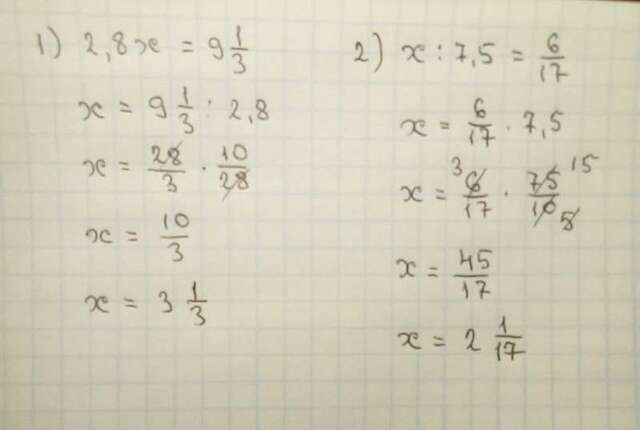 1) 2,8x = 9 1/3
x = 9 1/3 : 2,8
x = 28/3 · 10/28
x = 10/3
x = 3 1/3
2) x : 7,5 = 6/17
x = 6/17 · 7,5
x = 3 6/17 · 75/10 15 5
x = 45/17
x = 2 1/17